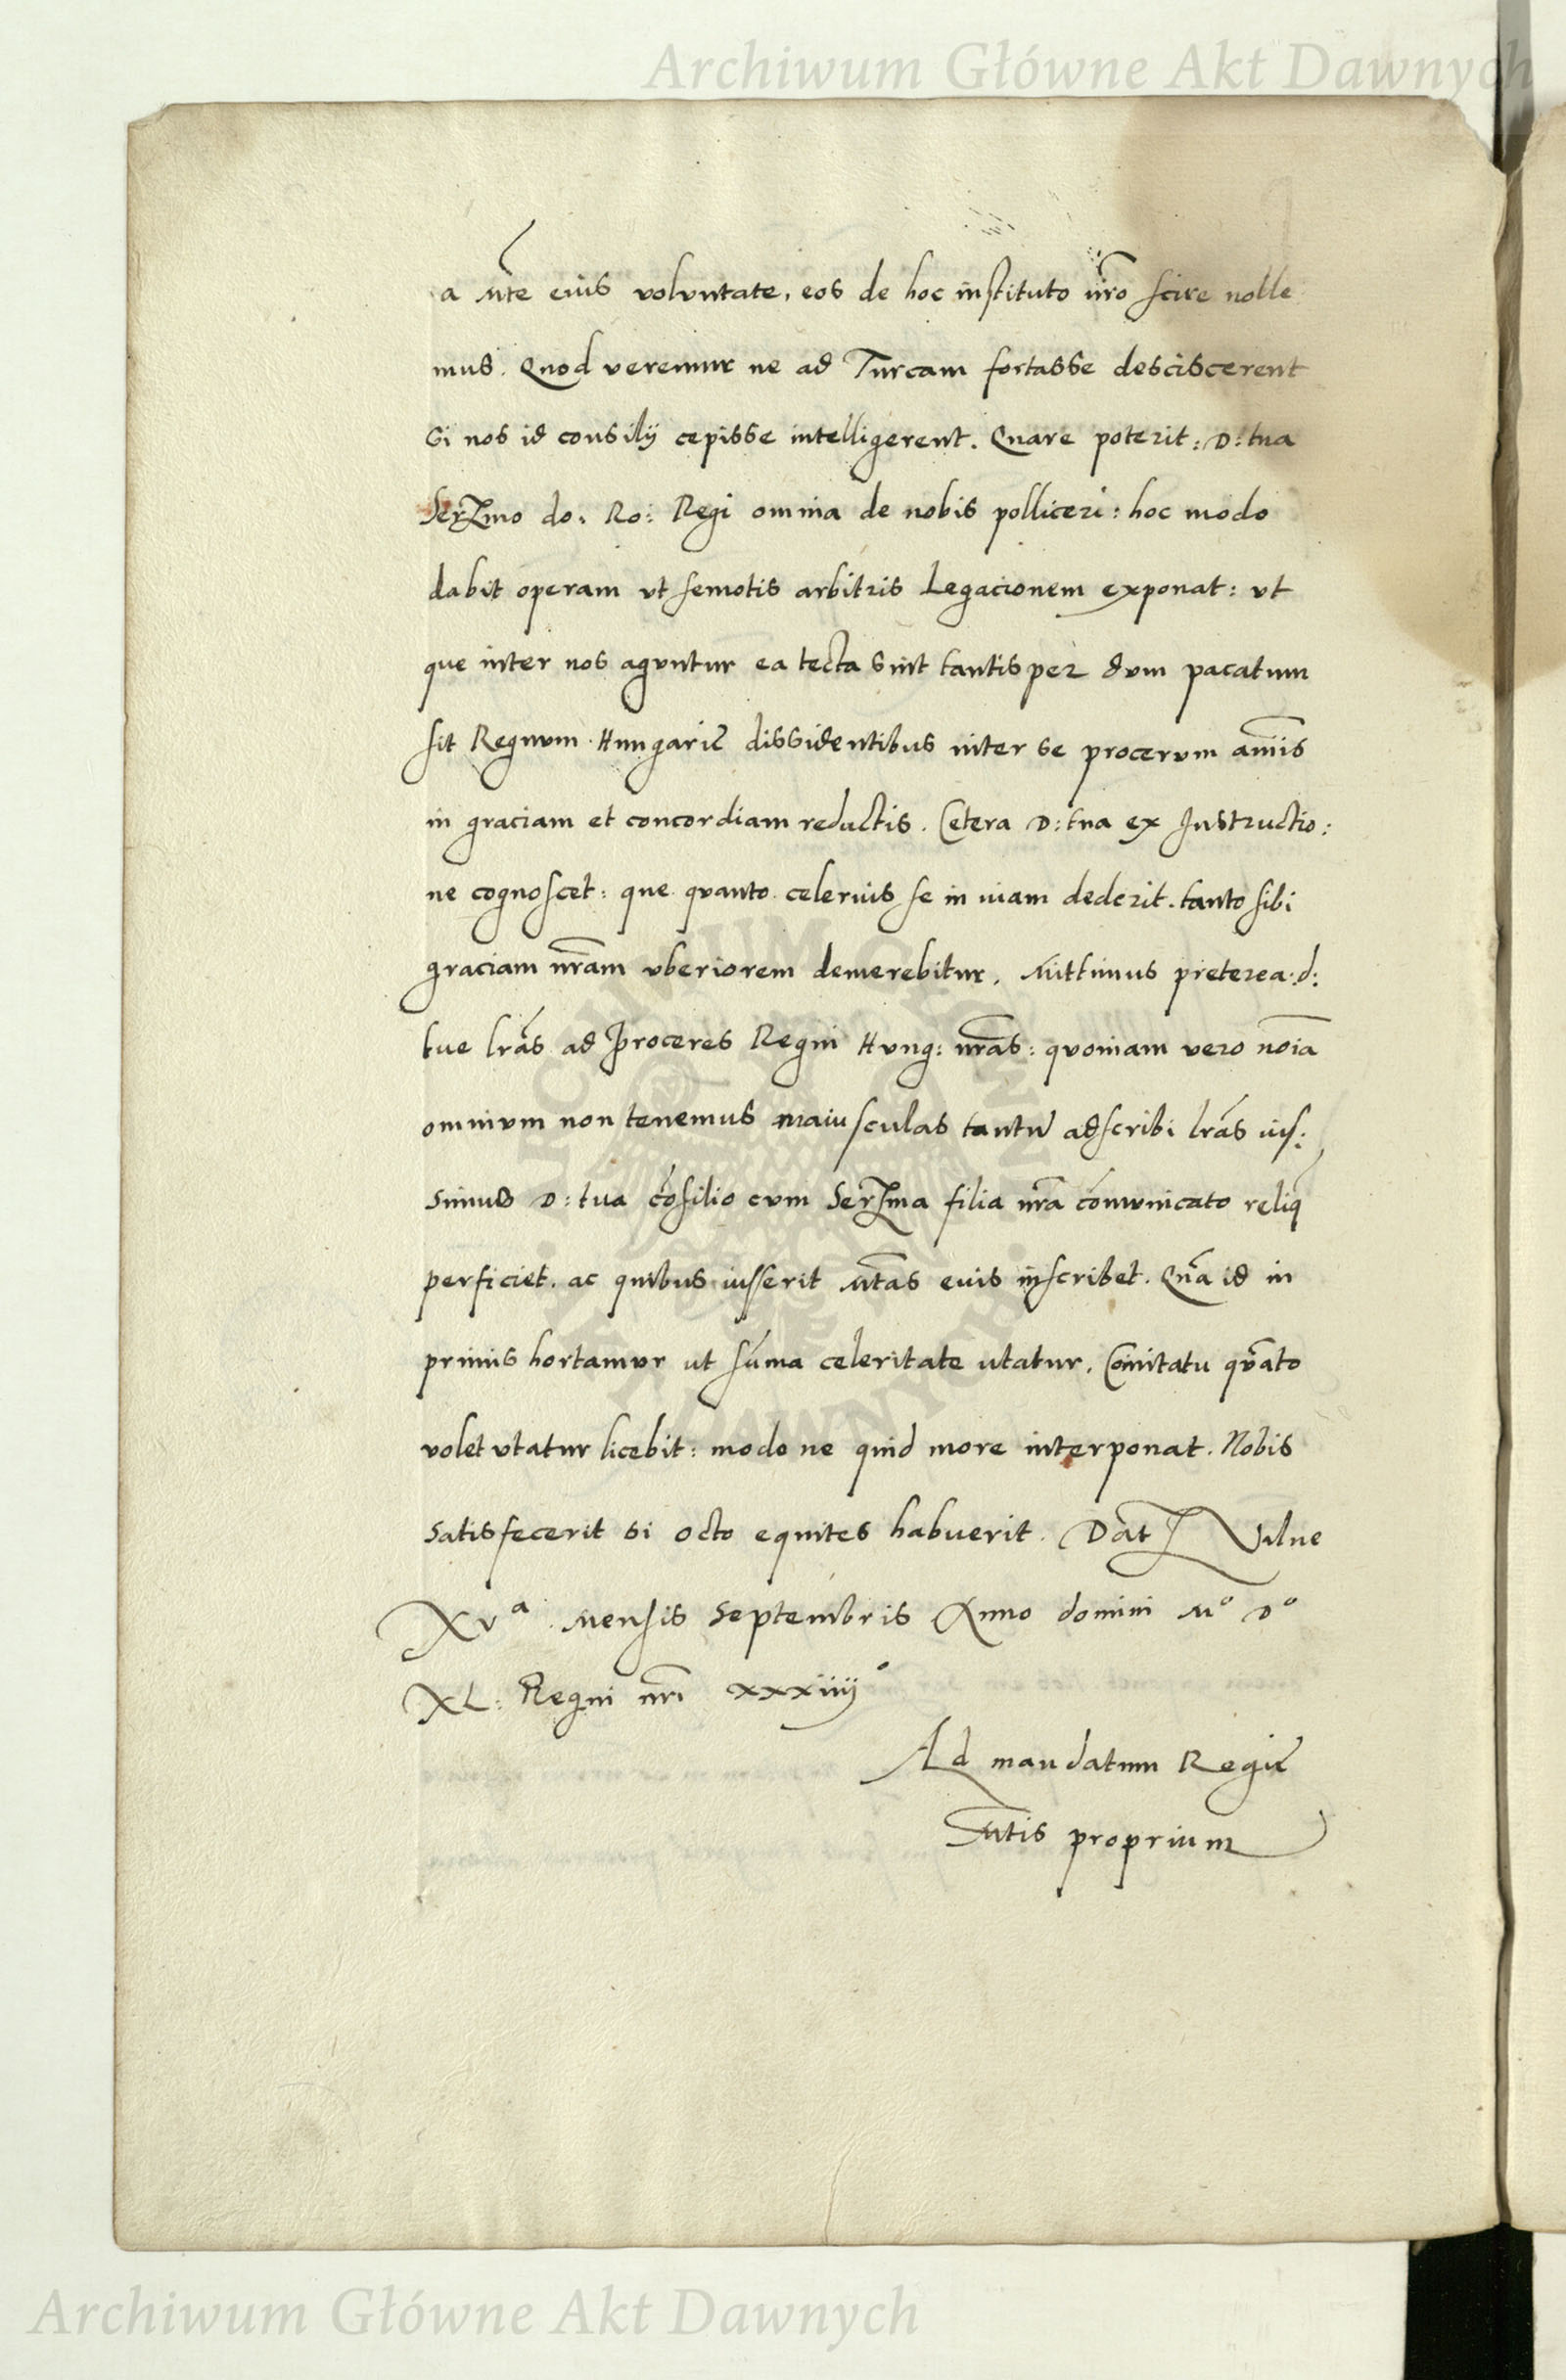 Archiwum Główne Akt Dawnych
a Mte eius voluntate, eos de hoc instituto nr̃o scire nolle
mus. Quod veremur ne ad Turcam fortasse desciscerent
Si nos id consilij cepisse intelligerent. Quare poterit: D: tua
Ser̃mo do: Ro: Regi omnia de nobis polliceri: hoc modo
dabit operam vt semotis arbitris Legacionem exponat: vt
que inter nos aguntur ea tecta sint tantisper dum pacatum
sit Regnum Hungarię dissidentibus inter se procerum anĩis
in graciam et concordiam reductis. Cetera D: tua ex Instructio:
ne cognoscet: que quanto celerius se in uiam dederit. tanto sibi
graciam nr̃am vberiorem demerebitur. Mittimus preterea .d:
tue lr̃as ad proceres Regni Hung: nr̃as: quoniam vero noĩa
omnium non tenemus maiusculas tantũ adscribi lr̃as ius:
simus D: tua cõsilio cum Ser̃ma filia nr̃a cõmunicato reliq̃
perficiet. ac quibus iusserit Mtas eius inscribet. Qm̃ id in
primis hortamur ut sũma celeritate utatur. Comitatu quãto
volet vtatur licebit: modo ne quid more interponat. Nobis
satisfecerit si octo equites habuerit. Dat Vilne
XVª Mensis Septembris Anno domini Mº Dº
XL: Regni nr̃i xxxiiijº
Ad mandatum Regię
Mtis proprium
ARCHIWUM GŁÓWNE AKT DAWNYCH
Archiwum Główne Akt Dawnych